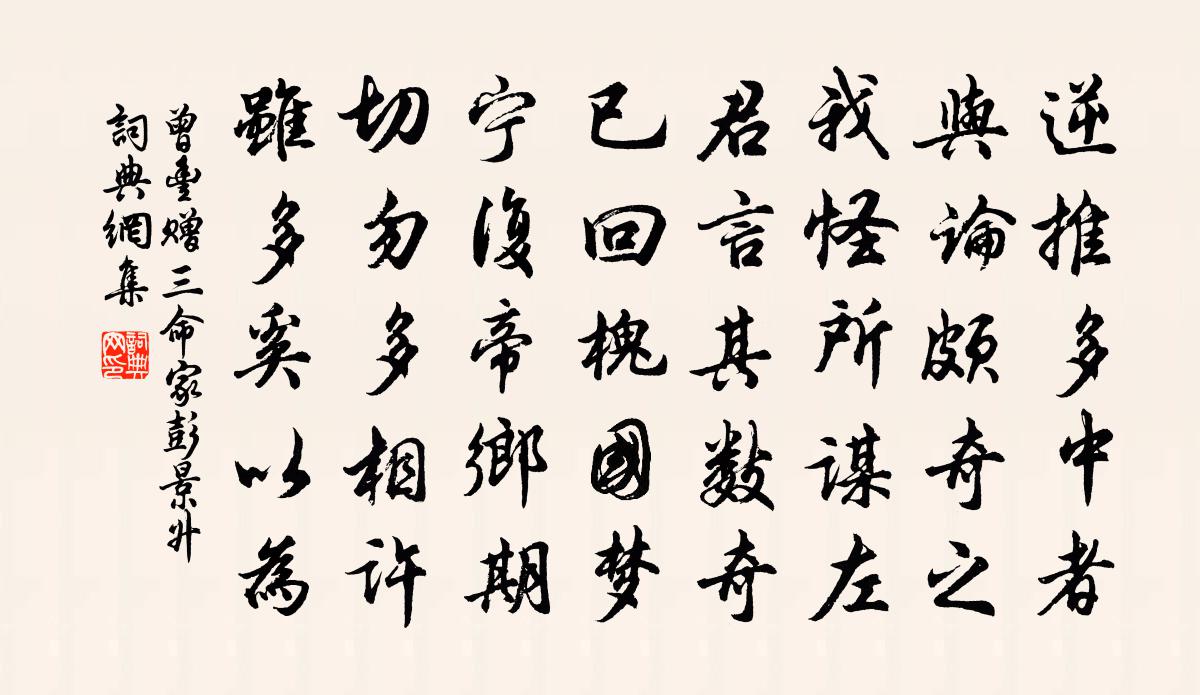 逆推多中者
與論頗奇之
我怪所謀左
君言其數奇
已回槐國梦
宁復帝鄉期
切勿多相許
雖多奚以為
曾豊赠三命家彭景升
詞典網集
詞典网印